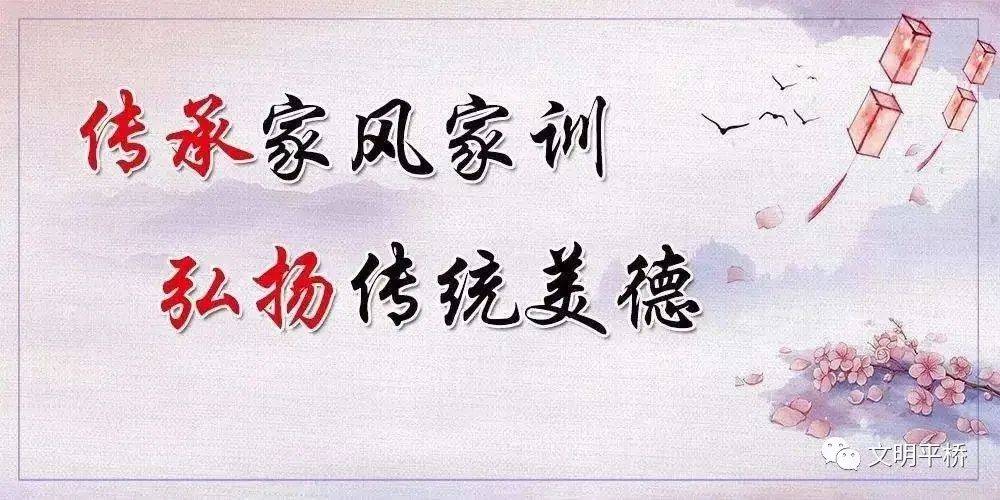 传承家风家训
弘扬传统美德
文明平桥